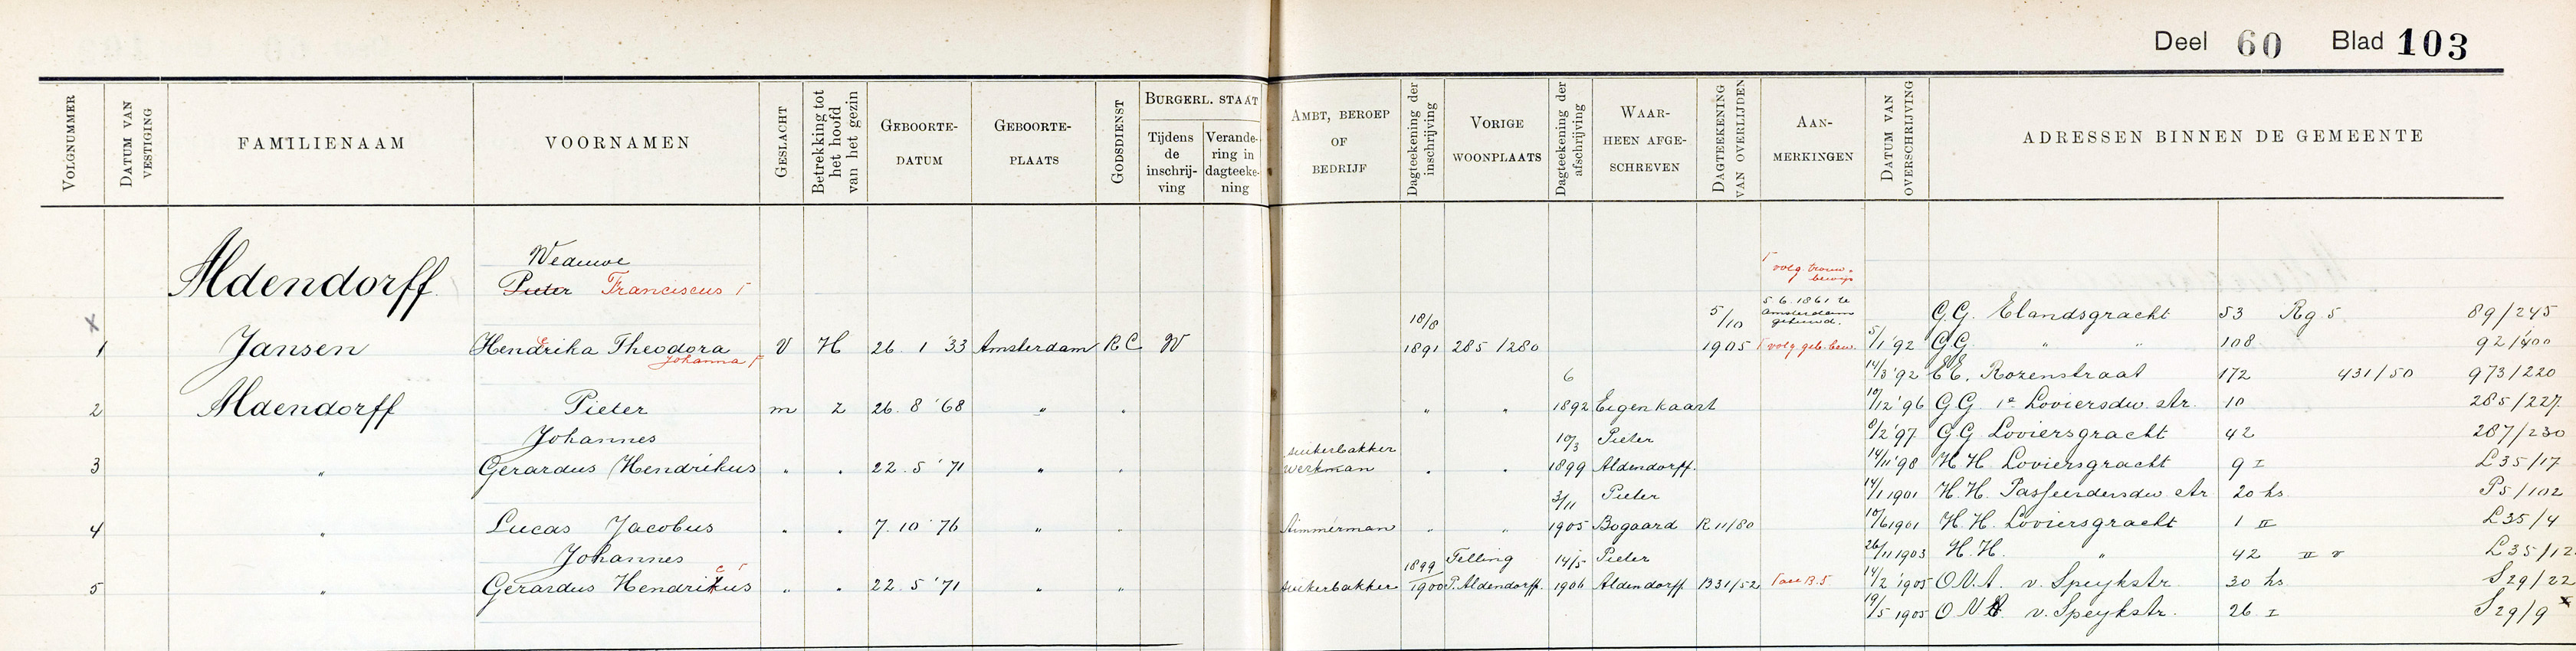 Deel 60 Blad 103
VOLGNUMMER
DATUM VAN VESTIGING
FAMILIENAAM
VOORNAMEN
GESLACHT
Betrekking tot het hoofd van het gezin
GEBOORTE-DATUM
GEBOORTE-PLAATS
GODSDIENST
BURGERL. STAAT
Tijdens de inschrij-ving
Verande-ring in dagteeke-ning
AMBT, BEROEP OF BEDRIJF
Dagteekening der inschrijving
VORIGE WOONPLAATS
Dagteekening der afschrijving
WAAR-HEEN AFGE-SCHREVEN
DAGTEEKENING VAN OVERLIJDEN
AAN-MERKINGEN
DATUM VAN OVERSCHRIJVING
ADRESSEN BINNEN DE GEMEENTE
Weduwe
Aldendorff Pieter Franciscus Γ
Γ volg. trouw-bewijs
5.6.1861 te Amsterdam gehuwd.
1 Jansen Hendrika Theodora V H 26 1 '33 Amsterdam RC W 18/8 1891 285/280 5/10 1905 Γ volg. geb. bew.
Johanna Γ
2 Aldendorff Pieter m z 26. 8 '68 " " " " 6 1892 Eigen kaart
Johannes
3 " Gerardus Hendrikus " " 22. 5 '71 " " suikerbakker werkman " " 10/3 1899 Pieter Aldendorff.
4 " Lucas Jacobus " " 7. 10 '76 " " timmerman " " 3/11 1905 Pieter Bogaard R 11/80
Johannes
5 " Gerardus Hendrikus " " 22. 5 '71 " " suikerbakker 1899/1900 Telling P. Aldendorff. 14/5 1906 Pieter Aldendorff B31/52
G.G. Elandsgracht 53 Rg 5 89/245
5/1 '92 G.G. " " 108 92/400
14/3 '92 E.E. Rozenstraat 172 431/50 973/220
10/12 '96 G.G. 1e Looiersdw. str. 10 285/227
8/2 '97 G.G Looiersgracht 42 287/230
14/11 '98 H.H. Looiersgracht 9 I L35/17
14/1 1901 H.H. Passeerdersdw str 20 hs P5/102
10/6 1901 H.H. Looiersgracht 1 II L35/4
26/11 1903 H.H. " 42 II v L35/12
14/2 1905 O.N.A. v. Speykstr. 30 hs S29/22
19/5 1905 O N v. Speykstr. 26 I S29/9 x